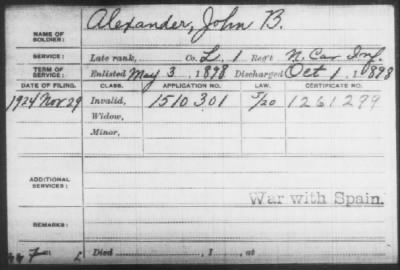 NAME OF SOLDIER: Alexander, John B.
SERVICE: Late rank, Co. L, 1 Reg't N. Car. Inf.
TERM OF SERVICE: Enlisted May 3, 1898 Discharged Oct 1, 1898
DATE OF FILING. CLASS. APPLICATION NO. LAW. CERTIFICATE NO.
1924 Nov 29 Invalid, 1510301 5/20 1261299
Widow,
Minor,
ADDITIONAL SERVICES:
War with Spain.
REMARKS:
Died , 1 , at